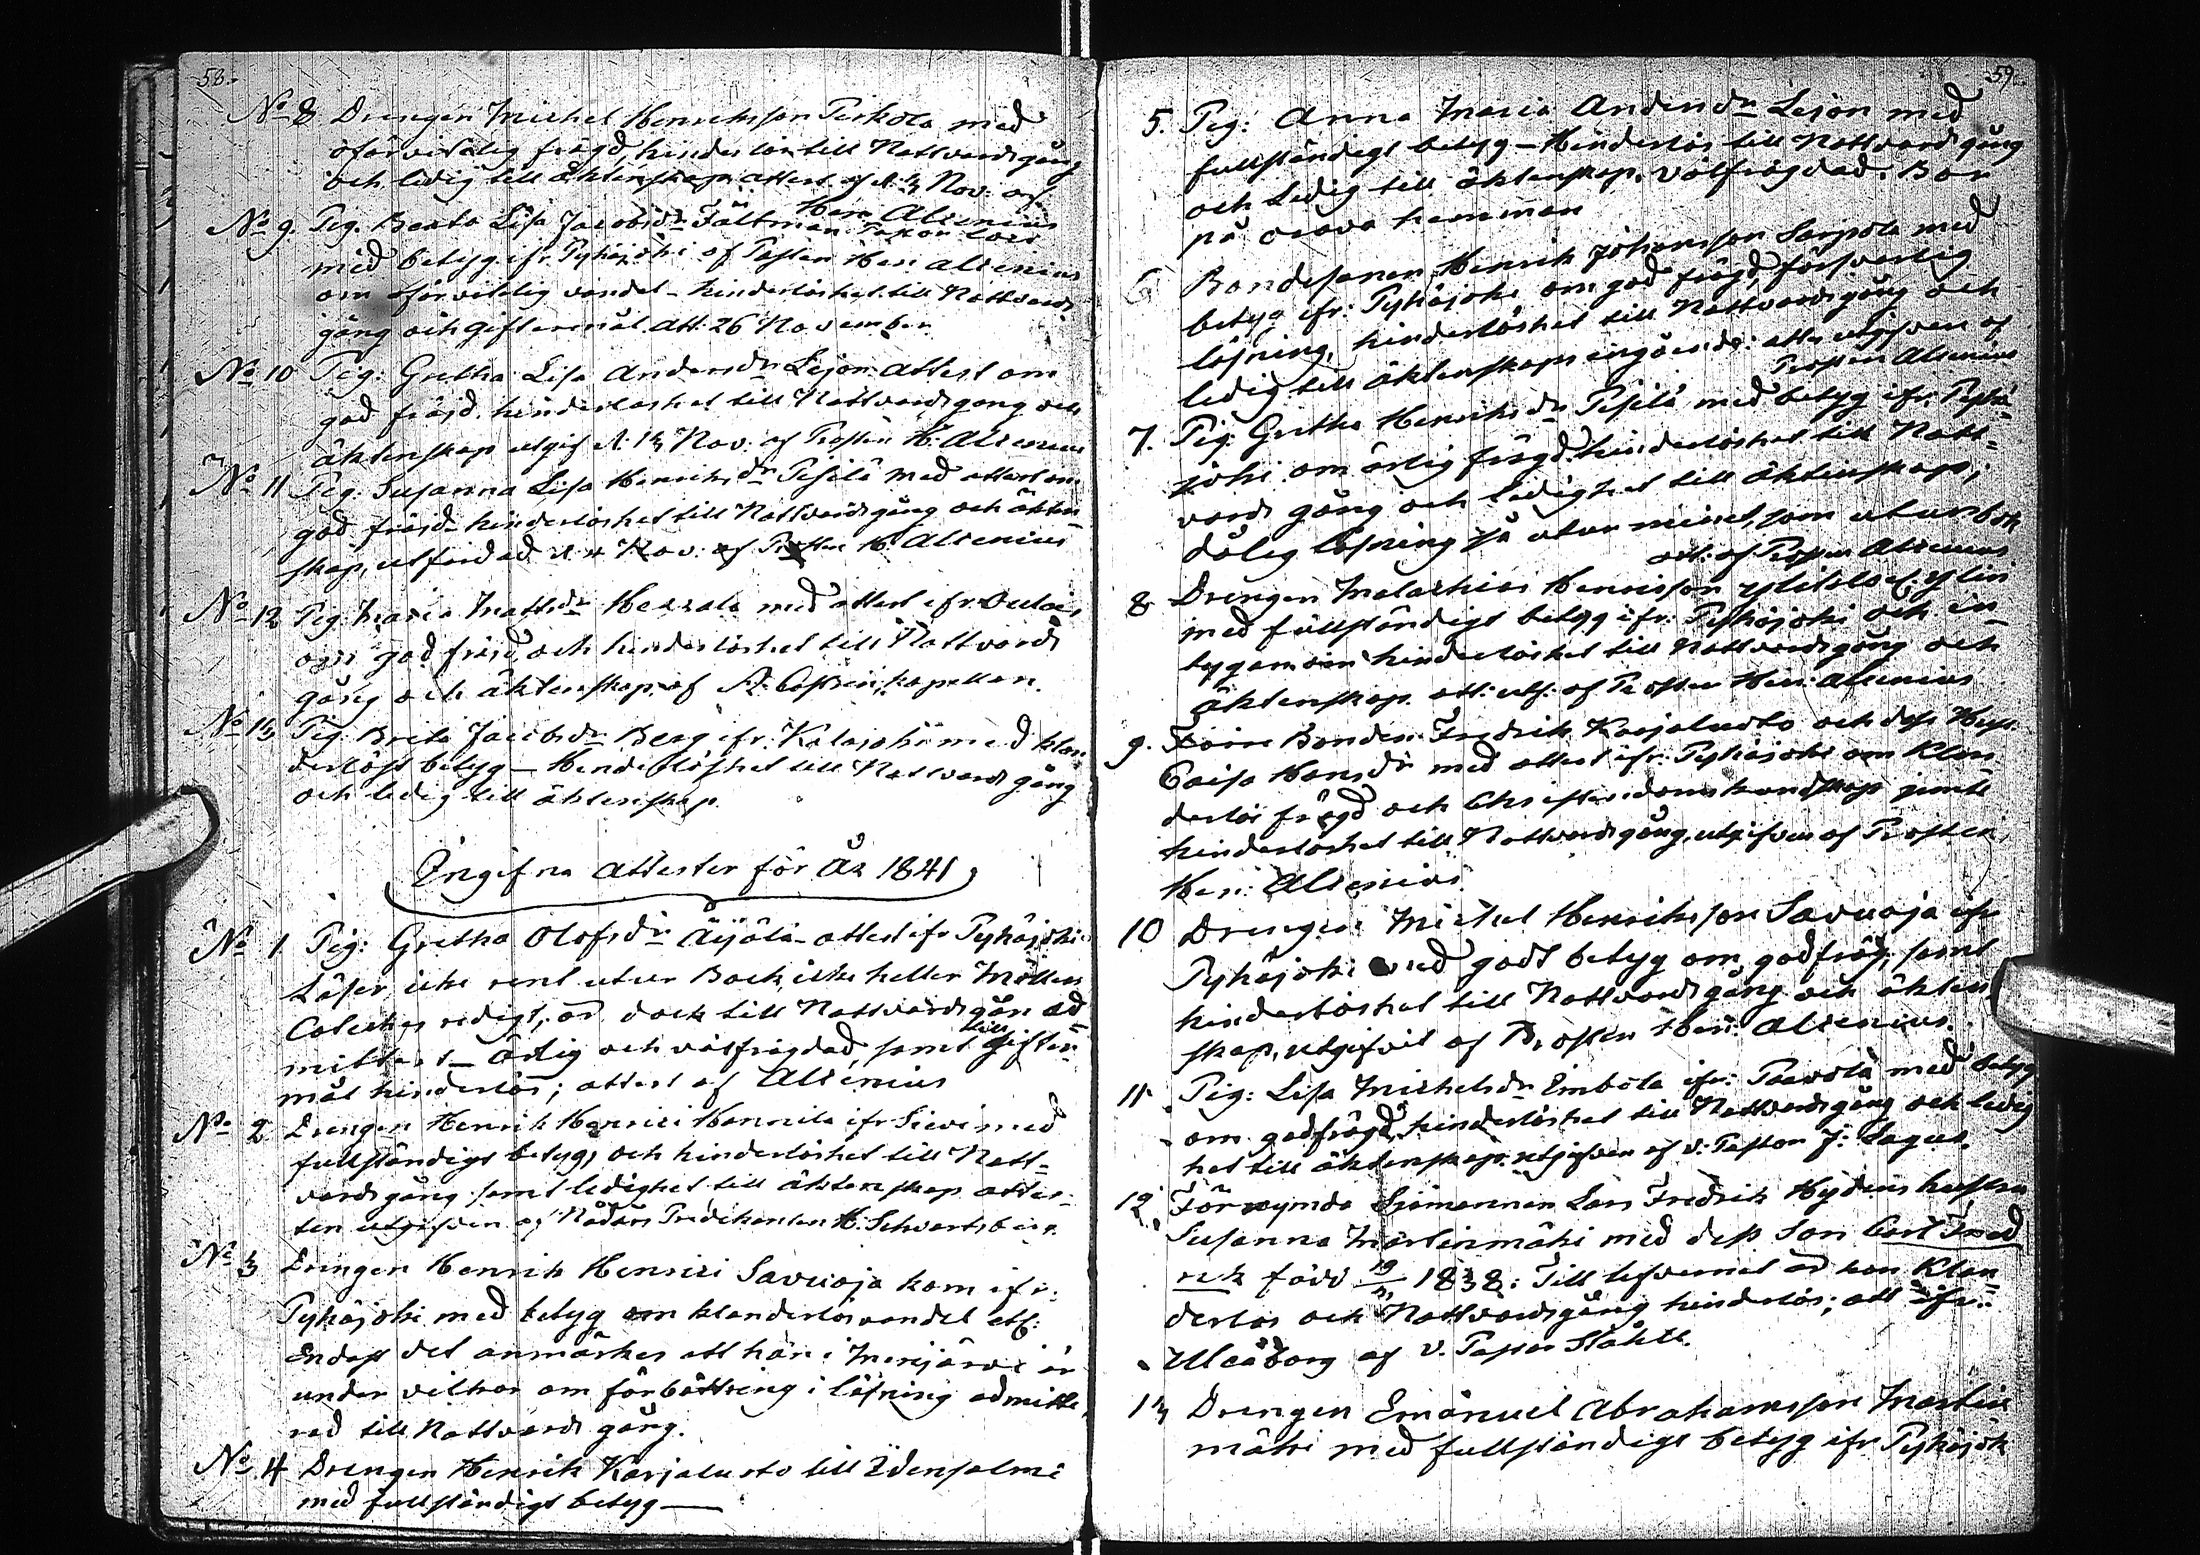 58.
No 8 Drengen Michel Henriksson Perkola med
oförvitelig frägd, hinderlös till Nattvardsgång
och ledig till äktenskap attest af d. 13 Nov. af
Hen: Alcenius
No 9. Pig. Beata Lisa Jacobsdr Fältman
med betyg ifr. Pyhäjoki af Prosten Hen: Alcenius
om oförvitelig vandel – hinderlöshet till Nattvards
gång och giftermål att: 26 November.
No 10 Pig: Gretha Lisa Andersdr Lejon attest om
god fräjd, hinderlöshet till Nattvardsgång och
äktenskap utgif d. 13 Nov. af Prosten H: Alcenius
No 11 Pig. Susanna Lisa Henriksdr Pesilä med attest om
god fräjd – hinderlöshet till Nattvardsgång och äkten-
skap, utfärdad d 4 Nov. af Prosten H. Alcenius
No 12 Pig. Maria Mattsdr Hexala med attest ifr. Oulais
om god fräjd och hinderlöshet till Nattvards
gång och äktenskap af A. Costren, kapellan.
No 13 Pig. Brita Jacobsdr Berg ifr. Kalajoki med klan-
derlöst betyg – Hinderlöshet till Nattvards gång
och ledig till äktenskap.
Ingifna Attester för År 1841
No 1 Pig: Gretha Olofsdr Äijälä – attest ifr Pyhäjoki
Läser icke rent utur Bok, icke heller Möllers
Cateches redigt, är dock till Nattvardsgån ad-
mitterd – Ärlig och välfrägdad, samt till Gifter-
mål hinderlös; attest af Alcenius
No 2 Drengen Henrik Henrici Hannila ifr Sievi med
fullständigt betyg, och hinderlöshet till Natt-
vards gång samt ledighet till äktenskap attes-
ten utgifven af Nådårs Predikanten H. Schvartzberg.
No 3 Drengen Henrik Henrici Savuoja kom ifr.
Pyhäjoki med betyg om klanderlös vandel etc:
Endast det anmärkes att han i Merijärvi är
under vilkor om förbättring i läsning admitte-
rad till Nattvards gång.
No 4 Drengen Henrik Karjaluoto till Idensalmi
med fullständigt betyg —
59.
5. Pig: Anna Maria Andersdr Lejon med
fullständigt betyg – Hinderlös till Nattvardsgång
och Ledig till äktenskap. välfrägdad. Bor
på orava hemman
6 Bondesonen Henrik Johansson Sarpola med
betyg ifr: Pyhäjoki om god frägd, försvarlig
läsning, hinderlöshet till Nattvardsgång och
ledig till äktenskaps ingående: attes utgifven af
Prosten Alcenius
7. Pig: Gretha Henriksdr Pesilä med betyg ifr. Pyhä-
joki om ärlig frägd hinderlöshet till Natt-
vards gång och ledighet till äktenskap;
dålig läsning så utur minnet, som utur bok
att: af Prosten Alcenius
8 Drengen Malachias Henricsson Ylitalo l. Ylin
med fullständigt betyg ifr: Pyhäjoki och in-
tygam om hinderlöshet till Nattvardsgång och
äktenskap. att: utg. af Prosten Hen: Alcenius
9. Förre Bonden Fredrik Karjaluoto och dess Hus.
Caisa Hansdr med attest ifr: Pyhäjoki om Klan
derlös frägd och Christendomskundskap jemte
hinderlöshet till Nattvardsgång, utgifven af Prosten
Hen: Alcenius.
10 Drengen Michel Henriksson Savuoja ifr
Pyhäjoki med godt betyg om godfräg, samt
hinderlöshet till Nattvards gång och äkten
skap, utgifvit af Prosten Hen: Alcenius.
11. Pig: Lisa Michelsdr Embola ifr: Paavola med betyg
om godfrägd, hinderlöshet till Nattvardsgång och ledig
het till äktenskap. utgifven af v. Pastor J: Lagus.
12 Förrymde Sjömannen Lars Fredrik Hydens hustru
Susanna Martinmäki med dess Son Carl Fred
rik född 1838: Till lefvernet är hon Klan-
derlös och Nattvardsgång hinderlös; att ifr:
Uleåborg af v. Pastor Ståhle.
13 Drengen Emanuel Abrahamsson Martin
mäki med fullständigt betyg ifr Pyhäjok